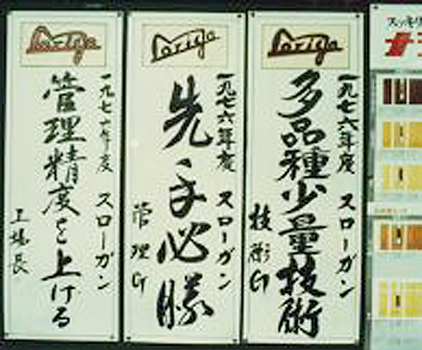 スッキリ
一九七六年度 スローガン
多品種少量技術
技術G
一九七六年度 スローガン
先手必勝
管理G
一九七六年度 スローガン
管理精度を上げる
工場長